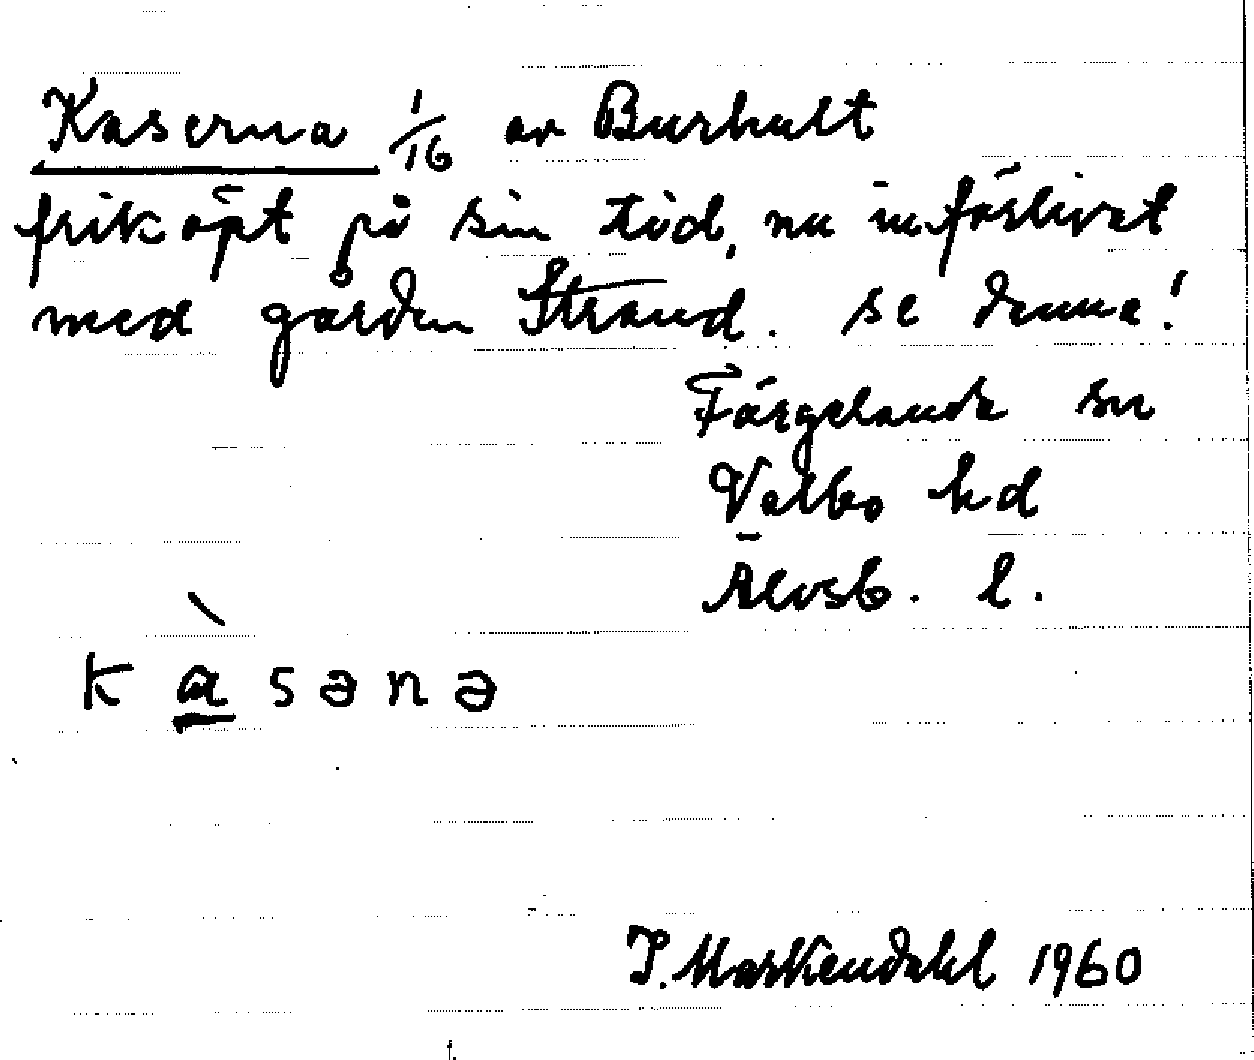 Kaserna 1/16 av Burhult
friköpt på sin tid, nu införlivat
med gården Strand. se denna!
Färgelanda sn
Valbo hd
Älvsb. l.
k à s ə n ə
I. Markendahl 1960
f.